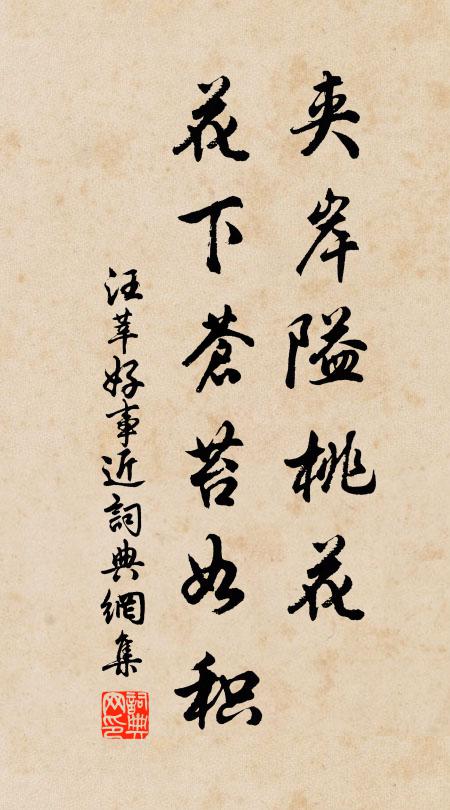 夹岸隘桃花
花下蒼苔如积
汪莘好事近詞典網集
詞典网印